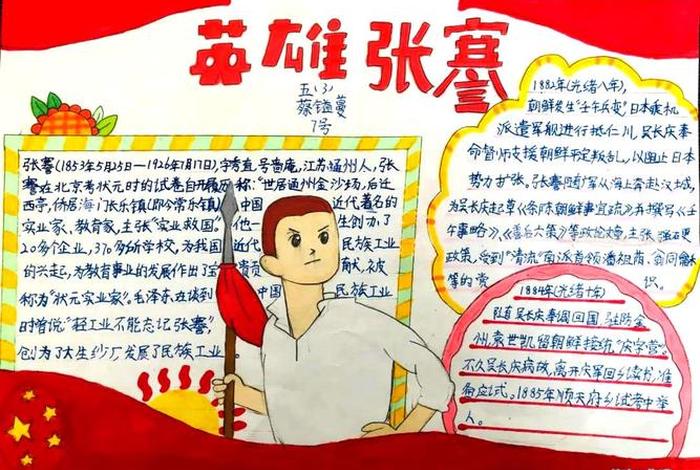 英雄张謇
五(3)
蔡镒蔓
7号
张謇(1853年5月25日—1926年7月17日),字季直,号啬庵,江苏通州人,张
謇在北京考状元时的试卷自开履历称:"世居通州金沙场,后迁
西亭,侨居海门长乐镇(即今常乐镇)中国近代著名的
实业家、教育家,主张"实业救国"他一生创办了
20多个企业,370多所学校,为我国近代民族工业
的兴起,为教育事业的发展作出了宝贵贡献,被
称为"状元实业家",毛泽东在谈到中国民族工业
时曾说:"轻工业不能忘记张謇"
创办了大生纱厂发展了民族工业
1882年(光绪八年),
朝鲜发生"壬午兵变"日本乘机
派遣军舰进行抵仁川,吴长庆奉
命督师支援朝鲜平定叛乱,以阻止日本
势力扩张。张謇随庆军从海上奔赴汉城,
为吴长庆起草《条陈朝鲜事宜疏》并撰写《壬
午事略》、《善后六策》等政论文章,主张强硬
政策,受到"清流"南派首领潘祖荫、翁同龢
等的赏识。
1884年(光绪十年)
随吴长庆奉调回国,驻防金
州,袁世凯留朝鲜接统"庆字营"。
不久吴长庆病故,离开庆军回乡读书,准
备应试。1885年顺天府乡试考中举
人。